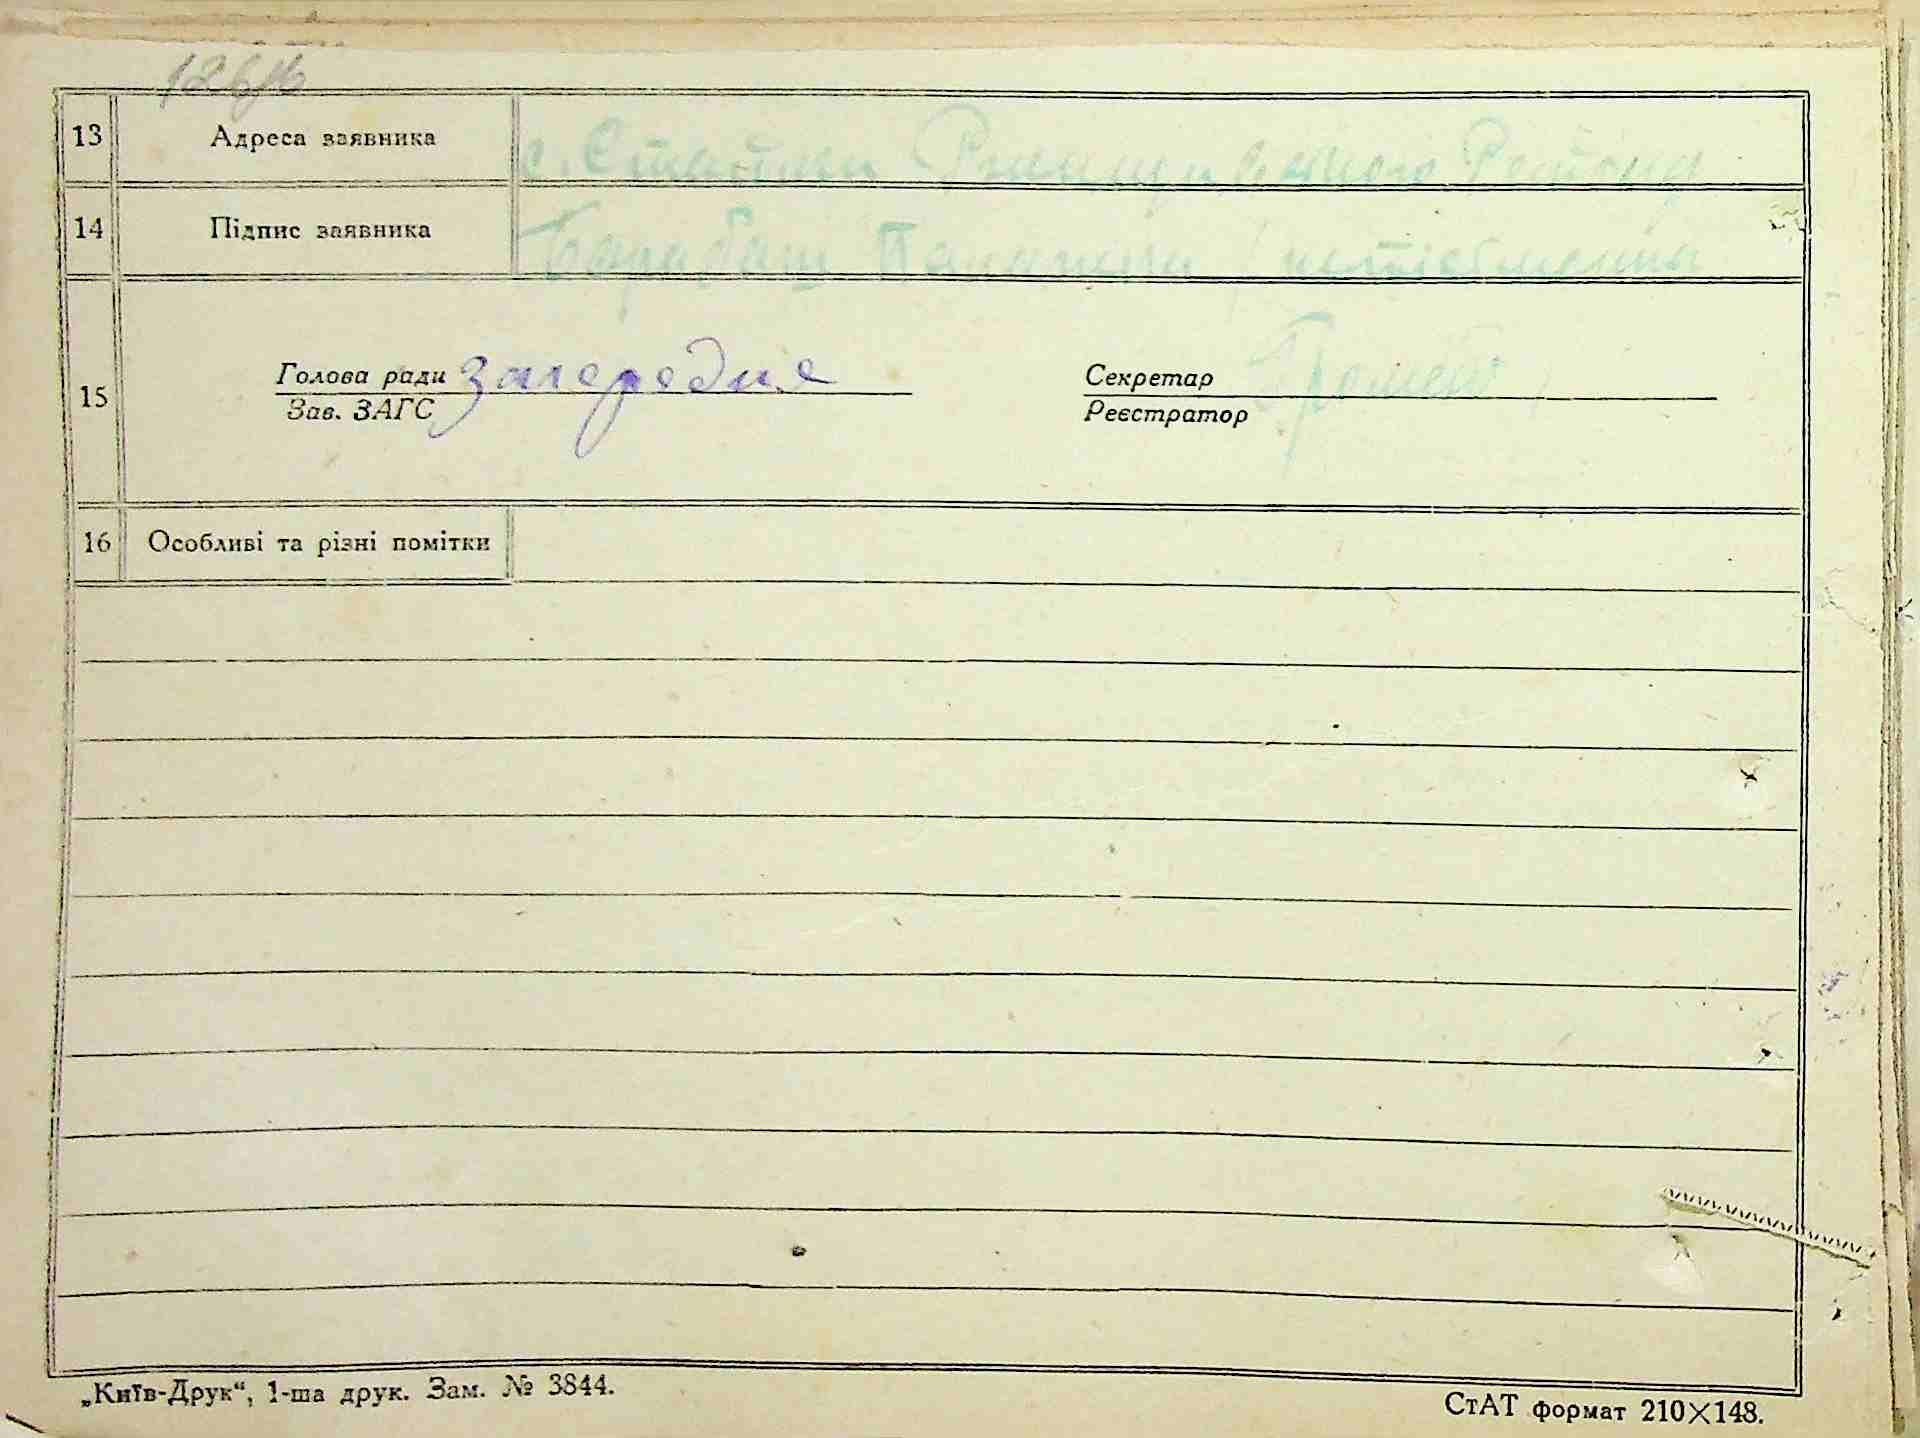 126/б
13 Адреса заявника с. Стайки Ржищівського Району
14 Підпис заявника Барабаш Палажки / неписьменна
15 Голова ради Секретар
Зав. ЗАГС Реєстратор
16 Особливі та різні помітки
„Київ-Друк“, 1-ша друк. Зам. № 3844.
СтАТ формат 210×148.